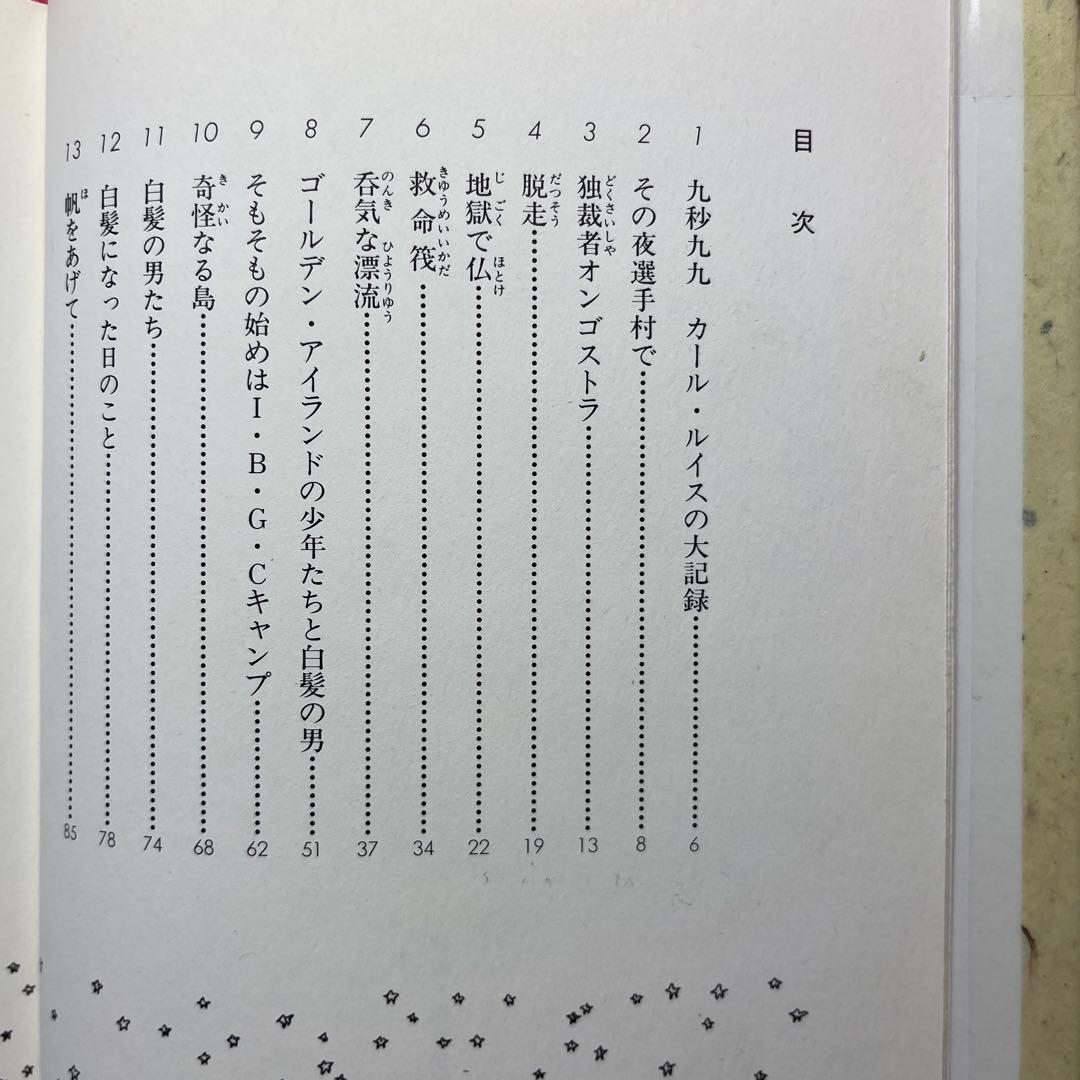 目次
1 九秒九九 カール・ルイスの大記録……6
2 その夜選手村で……8
3 独裁者オンゴストラ……13
4 脱走……19
5 地獄で仏……22
6 救命筏……34
7 呑気な漂流……37
8 ゴールデン・アイランドの少年たちと白髪の男……51
9 そもそもの始めはI・B・G・Cキャンプ……62
10 奇怪なる島……68
11 白髪の男たち……74
12 白髪になった日のこと……78
13 帆をあげて……85